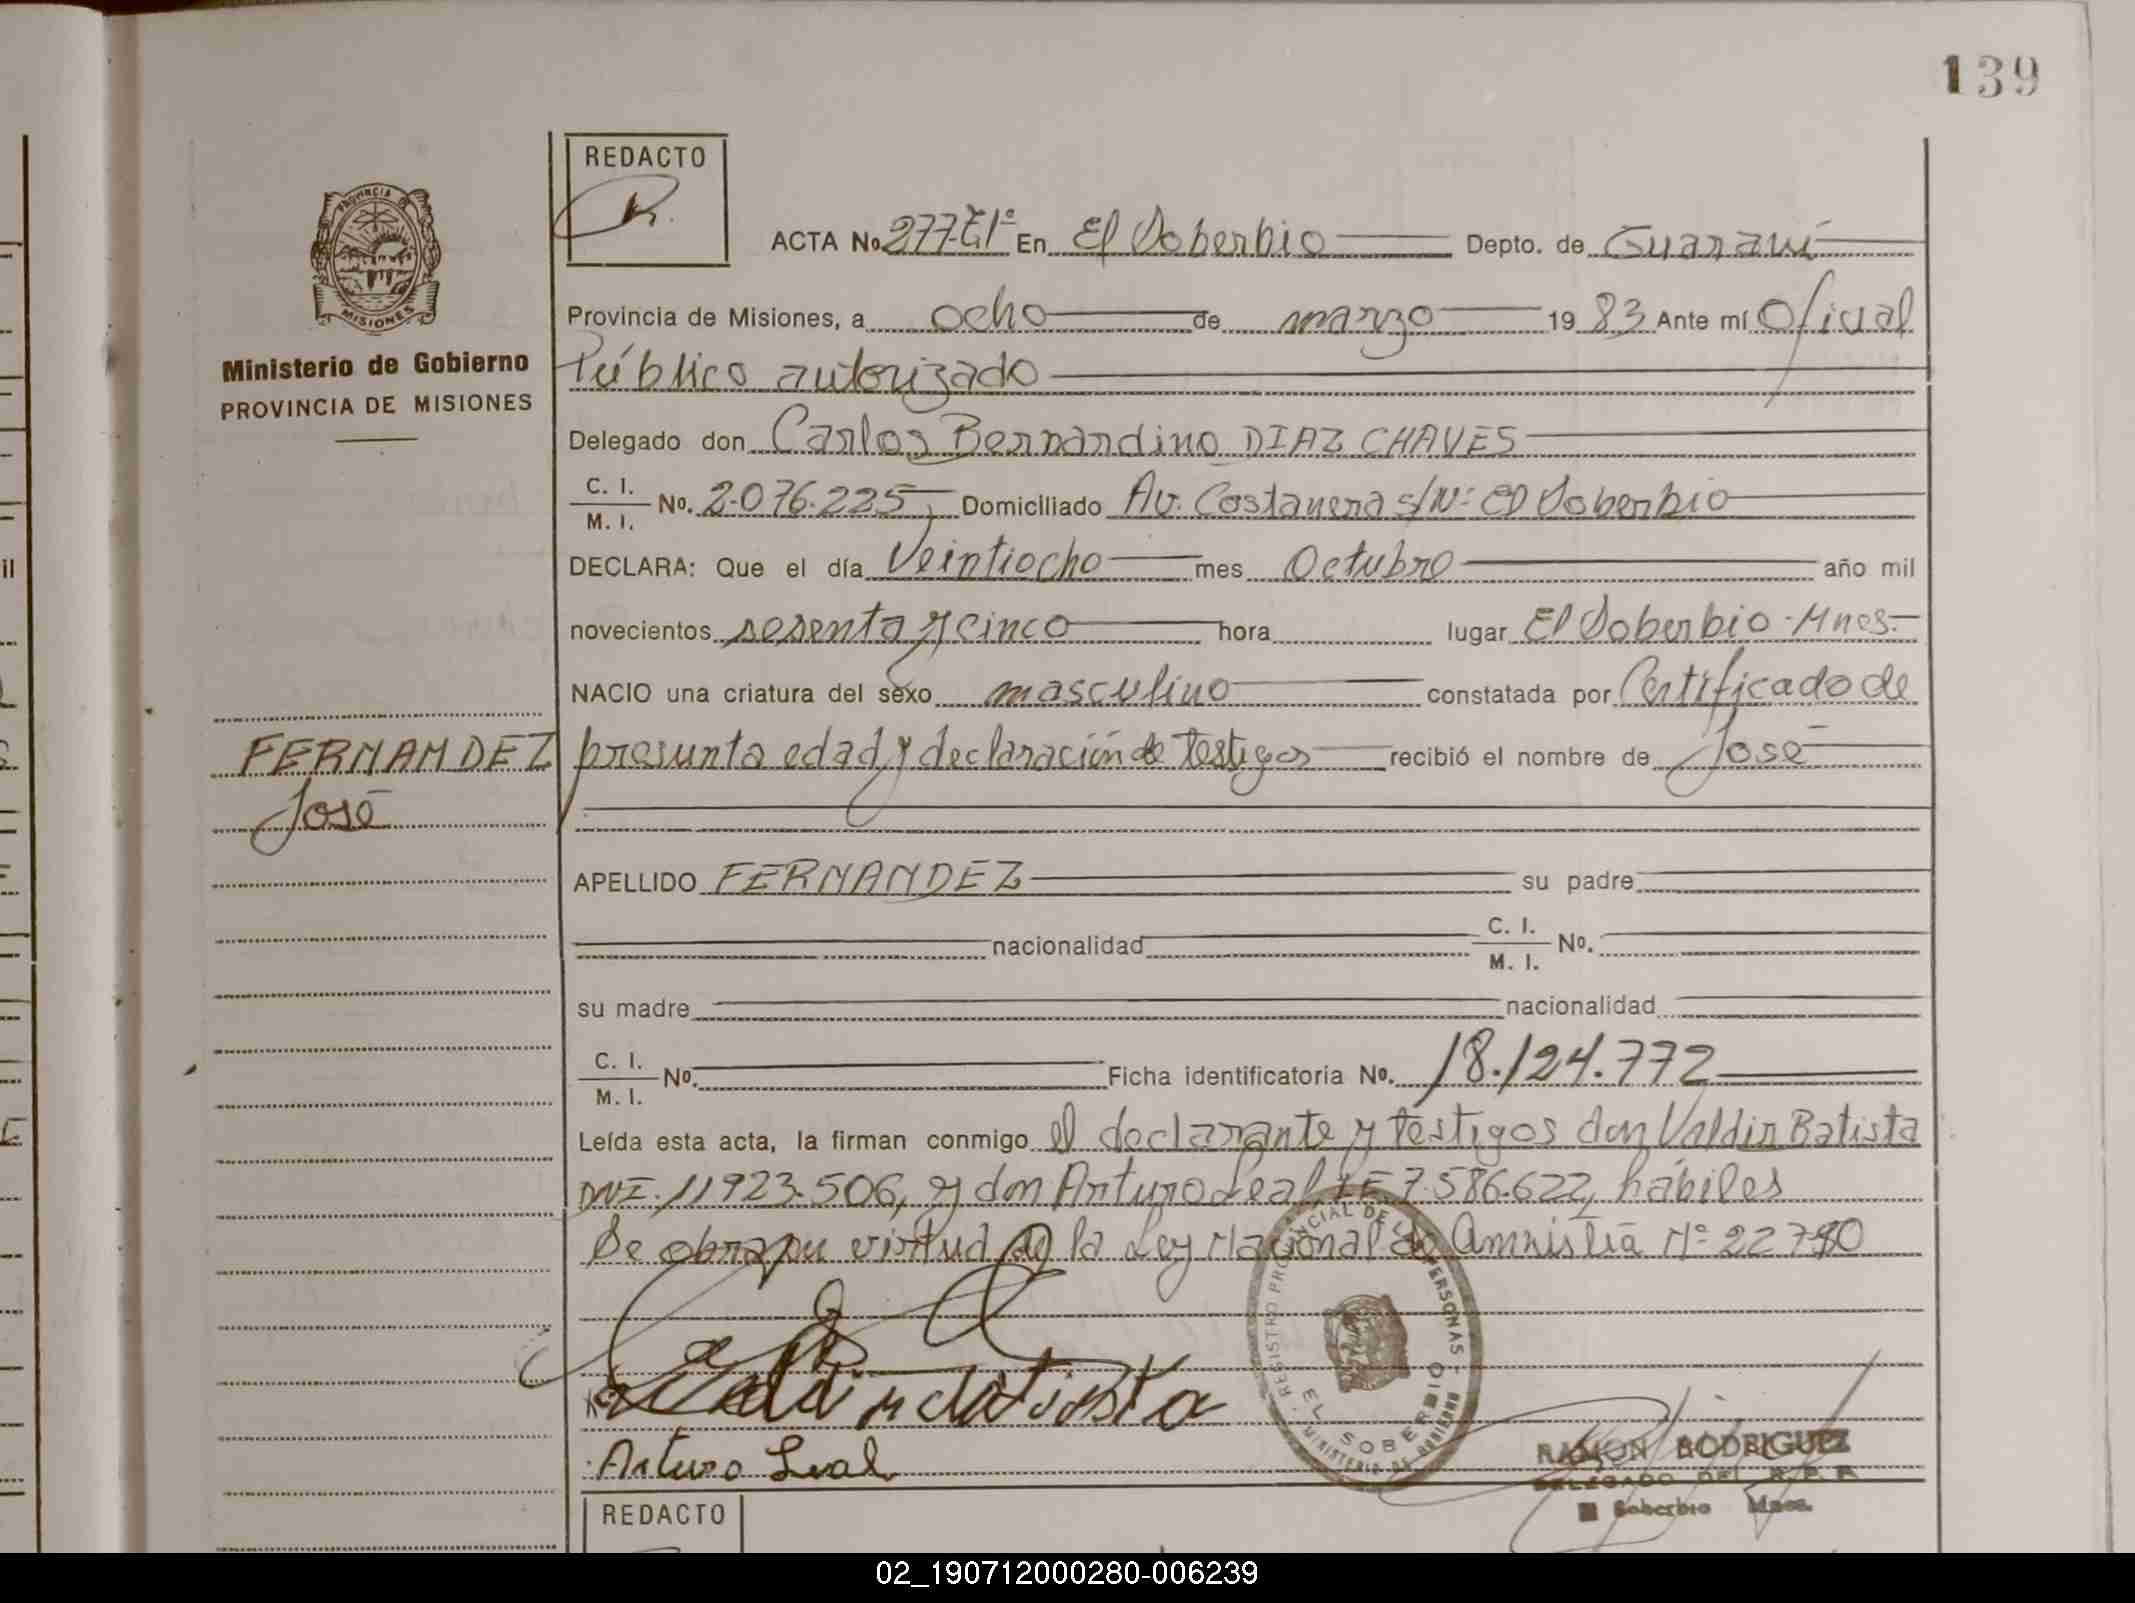 139
REDACTO
PROVINCIA DE
MISIONES
Ministerio de Gobierno
PROVINCIA DE MISIONES
ACTA No. 277-T1° En El Soberbio Depto. de Guaraní
Provincia de Misiones, a ocho de marzo 1983 Ante mí Oficial
Público autorizado
Delegado don Carlos Bernardino DIAZ CHAVES
C. I. / M. I. No. 2.076.225, Domiciliado Av. Costanera s/N° El Soberbio
DECLARA: Que el día Veintiocho mes Octubre año mil
novecientos sesenta y cinco hora lugar El Soberbio-Mnes.
NACIO una criatura del sexo masculino constatada por Certificado de
presunta edad y declaración de testigos recibió el nombre de José
FERNANDEZ
José
APELLIDO FERNANDEZ su padre
nacionalidad C. I. / M. I. No.
su madre nacionalidad
C. I. / M. I. No. Ficha identificatoria No. 18.124.772
Leída esta acta, la firman conmigo el declarante y testigos don Valdir Batista
DNI. 11923.506, y don Arturo Leal, LE 7.586.622, hábiles
Se obra en virtud de la Ley Nacional de Amnistía N° 22780
REGISTRO PROVINCIAL DE LAS PERSONAS
EL SOBERBIO
MINISTERIO DE GOBIERNO
Valdir Batista
Arturo Leal
RAMON RODRIGUEZ
DELEGADO DEL R. P. P.
El Soberbio Mnes.
REDACTO
il
02_190712000280-006239